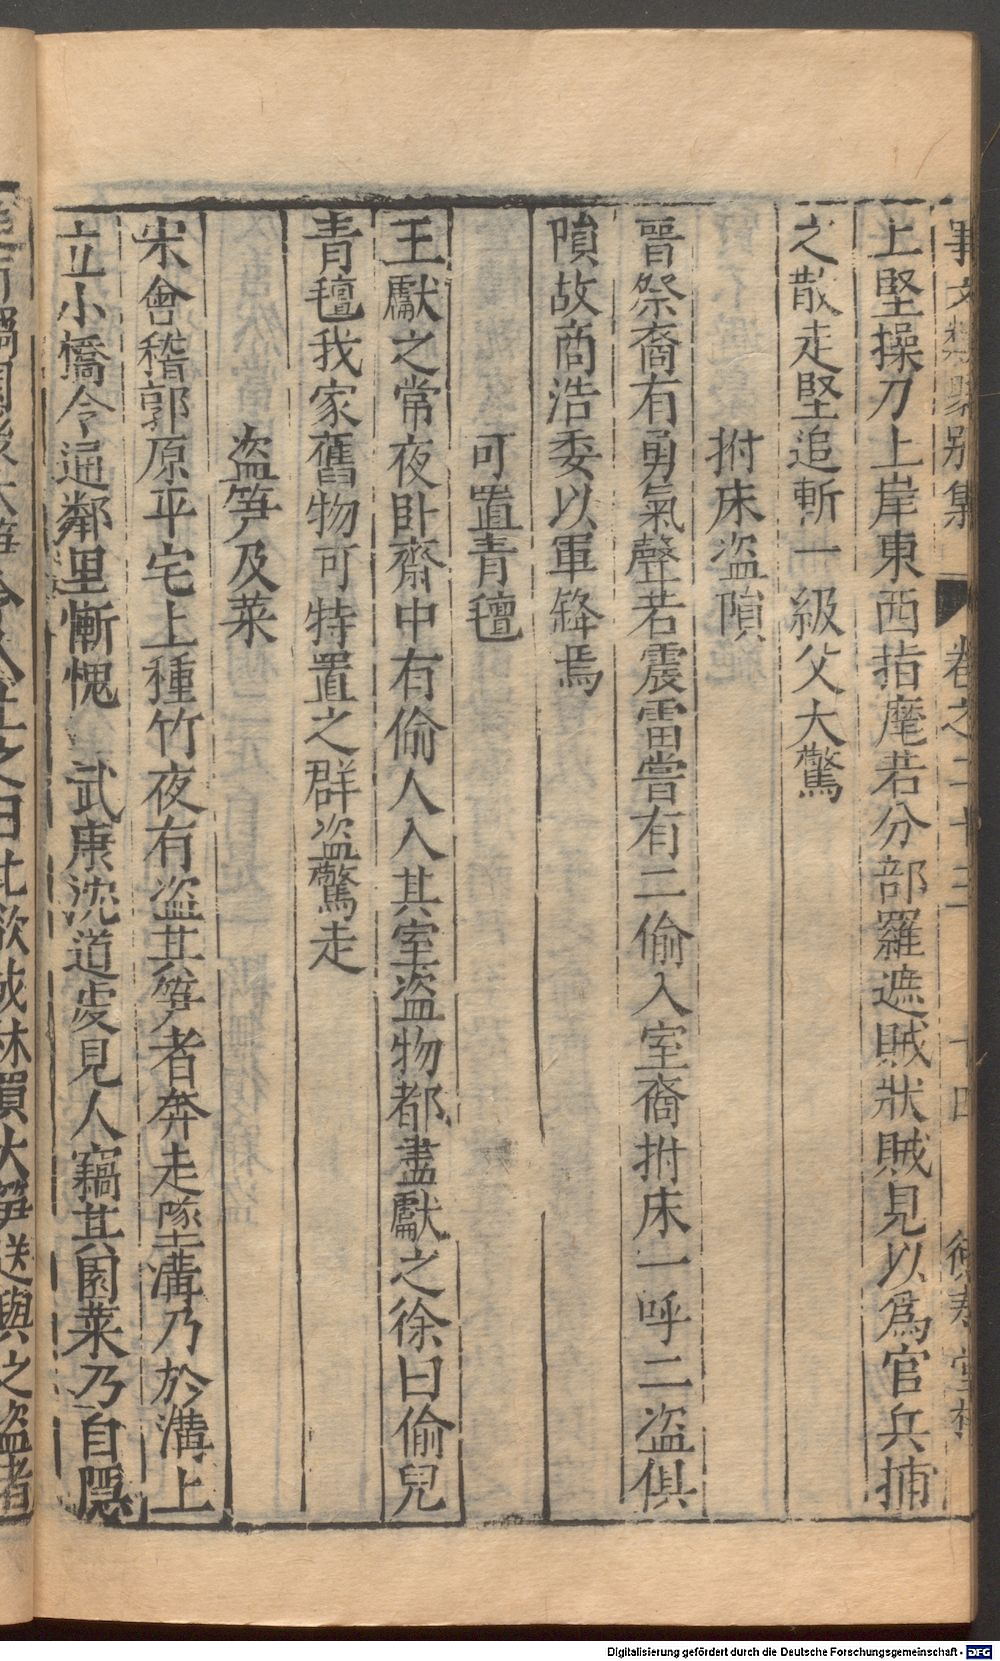 事文類聚别集 卷之二十三 十四
上堅操刀上岸東西指麾若分部羅遮賊狀賊見以爲官兵捕
之散走堅追斬一級父大驚
拊床盗隕
晉祭裔有勇氣聲若震雷嘗有二偷入室裔拊床一呼二盗俱
隕故商浩委以軍鋒焉
可置青氊
王獻之常夜卧齋中有偷人入其室盗物都盡獻之徐曰偷兒
青氊我家舊物可特置之群盗驚走
盗笋及菜
宋會稽郭原平宅上種竹夜有盗其笋者奔走墜溝乃於溝上
立小橋令通鄰里慚愧 武康沈道虔見人竊其園菜乃自隱
之曰此欲成林買大笋送與之盗者
Digitalisierung gefördert durch die Deutsche Forschungsgemeinschaft - DFG